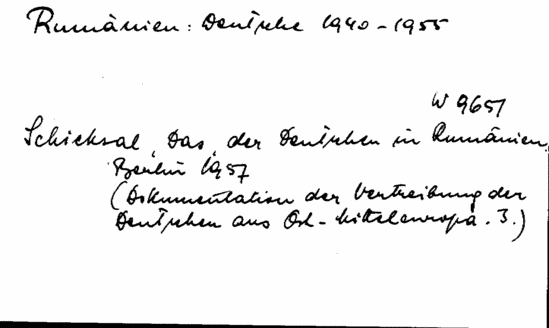 Rumänien: Deutsche 1940-1955
W 9651
Schicksal, Das, der Deutschen in Rumänien,
Berlin 1957
(Dokumentation der Vertreibung der
Deutschen aus Ost-Mitteleuropa. 3.)